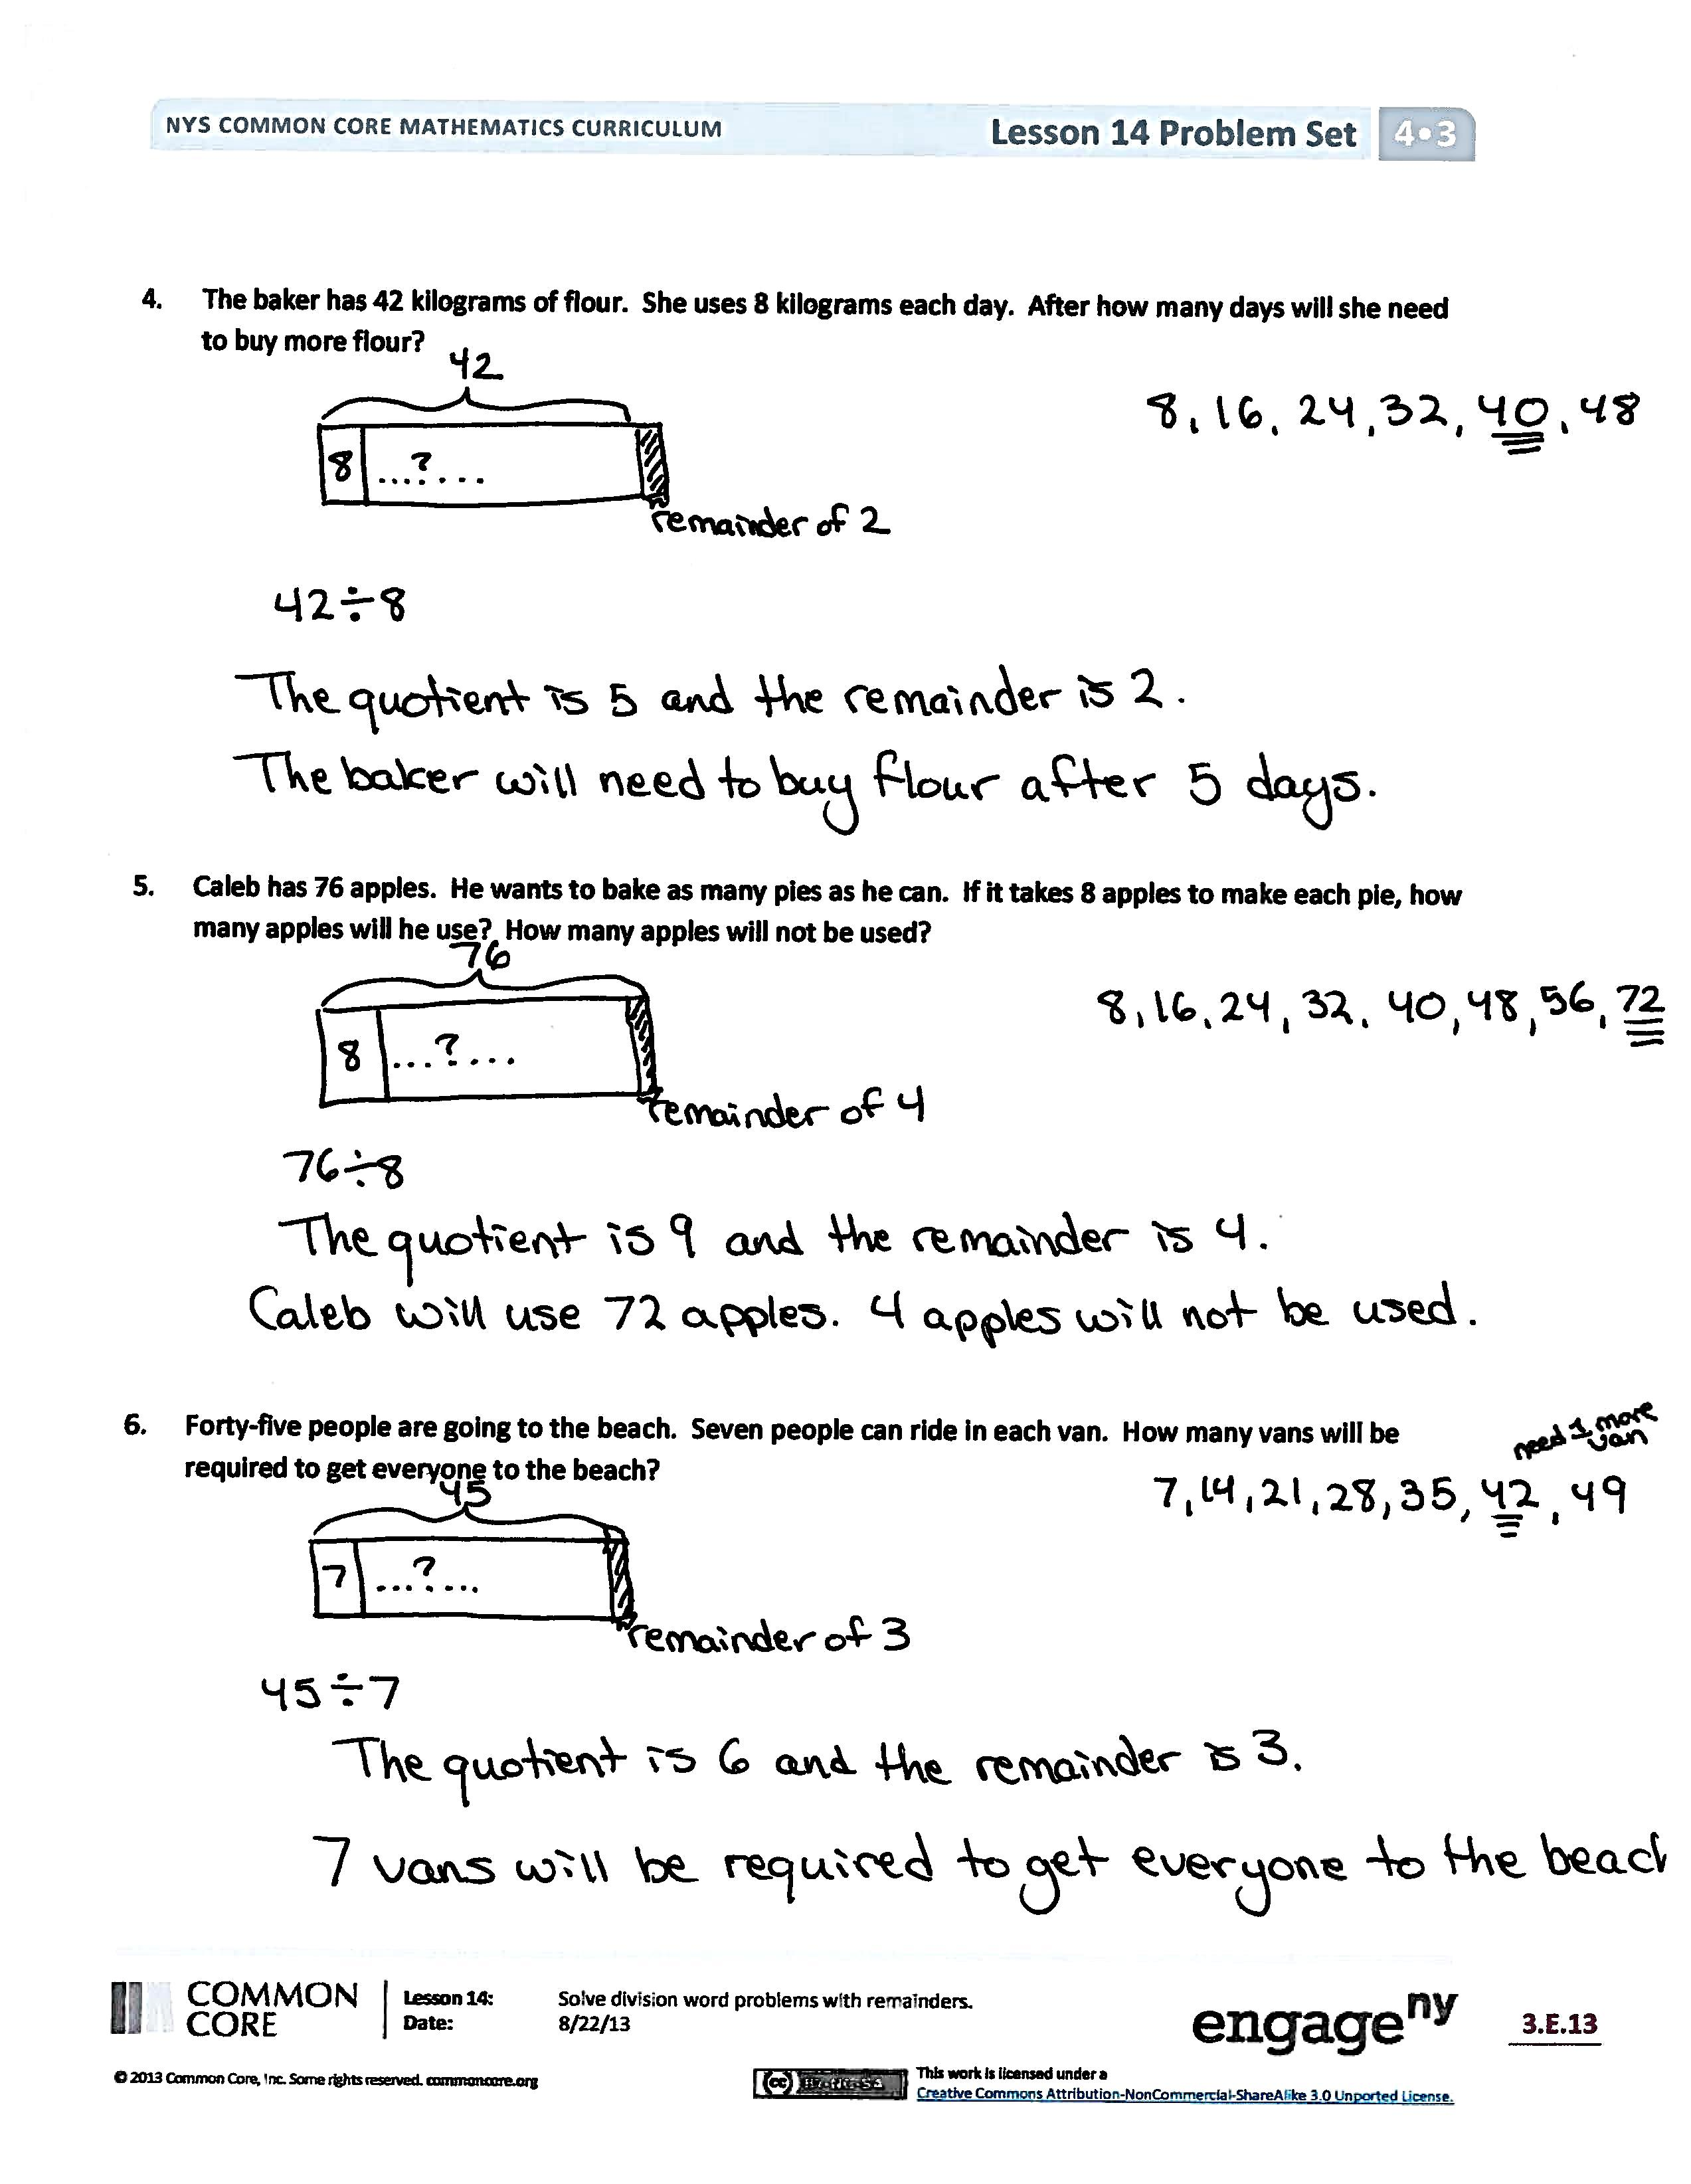 NYS COMMON CORE MATHEMATICS CURRICULUM
Lesson 14 Problem Set 4•3
4. The baker has 42 kilograms of flour. She uses 8 kilograms each day. After how many days will she need
to buy more flour?
42
8, 16, 24, 32, 40, 48
8 ...?...
remainder of 2
42÷8
The quotient is 5 and the remainder is 2.
The baker will need to buy flour after 5 days.
5. Caleb has 76 apples. He wants to bake as many pies as he can. If it takes 8 apples to make each pie, how
many apples will he use? How many apples will not be used?
76
8, 16, 24, 32, 40, 48, 56, 72
8 ...?...
remainder of 4
76÷8
The quotient is 9 and the remainder is 4.
Caleb will use 72 apples. 4 apples will not be used.
6. Forty-five people are going to the beach. Seven people can ride in each van. How many vans will be
required to get everyone to the beach?
need 1 more
van
45
7, 14, 21, 28, 35, 42, 49
7 ...?...
remainder of 3
45÷7
The quotient is 6 and the remainder is 3.
7 vans will be required to get everyone to the beach
COMMON
CORE
Lesson 14: Solve division word problems with remainders.
Date: 8/22/13
engageny
3.E.13
© 2013 Common Core, Inc. Some rights reserved. commoncore.org
(cc)
This work is licensed under a
Creative Commons Attribution-NonCommercial-ShareAlike 3.0 Unported License.